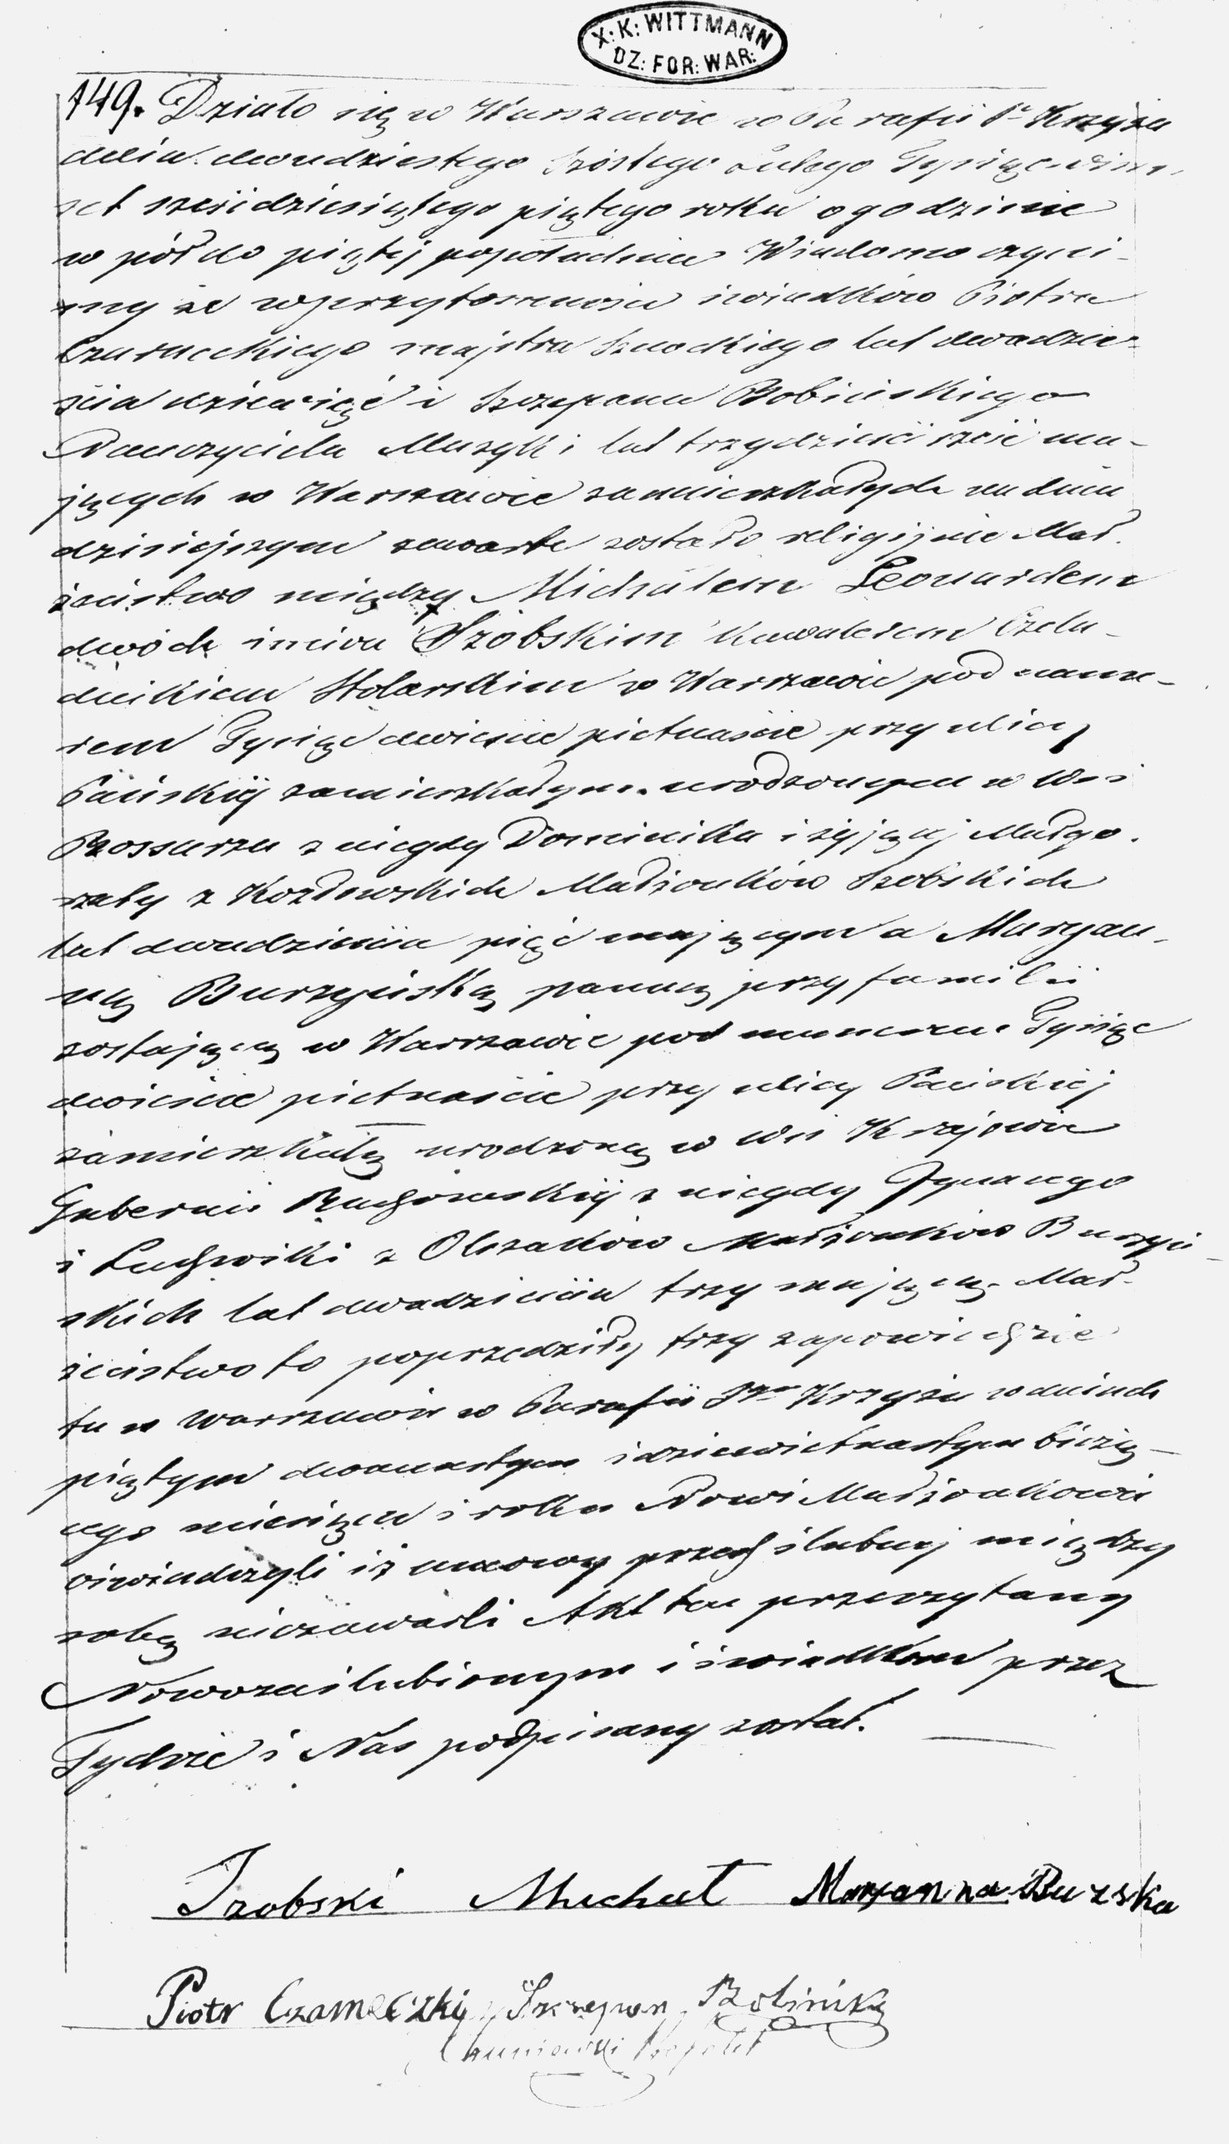 X: K: WITTMANN
DZ: FOR: WAR:
149. Działo się w Warszawie w Parafii Sgo Krzyża
dnia dwudziestego szóstego Lutego Tysiąc ośm-
set sześćdziesiątego piątego roku o godzinie
w pół do piątej popołudniu Wiadomo czyni-
my że w przytomności świadków Piotra
Czarneckiego majstra lat dwadzie-
ścia dziewięć i Szczepana Bobińskiego
Nauczyciela Muzyki lat trzydzieści sześć ma-
jących w Warszawie zamieszkałych na dniu
dzisiejszym zawarte zostało religijnie Mał-
żeństwo między Michałem Leonardem
dwóch imion Szobskim Kawalerem Czela-
dnikiem Stolarskim w Warszawie pod nume-
rem Tysiąc dwieście piętnaście przy ulicy
Pańskiej zamieszkałym urodzonym w Wsi
z niegdy Dominika i żyjącej Małgo-
rzaty z Małżonków Szobskich
lat dwadzieścia pięć mającym a Maryan-
ną Burzyńską panną przy familii
zostającą w Warszawie pod numerem Tysiąc
dwieście piętnaście przy ulicy Pańskiej
zamieszkałą urodzoną w Wsi Krajowie
Gubernii z niegdy Ignacego
i Ludwiki z Olszaków Małżonków Burzyń-
skich lat dwadzieścia trzy mającą. Mał-
żeństwo to poprzedziły trzy zapowiedzie
tu w Warszawie w Parafii Sgo Krzyża w dniach
piątym dwunastym i dziewiętnastym bieżą-
cego miesiąca i roku Nowi Małżonkowie
oświadczyli iż umowy przedślubnej między
sobą niezawarli Akt ten przeczytany
Nowozaślubionym i świadkom przez
Tychże i Nas podpisany został.
Szobski Michał Maryanna Burzska
Piotr Czarneczki Szczepan Bobiński